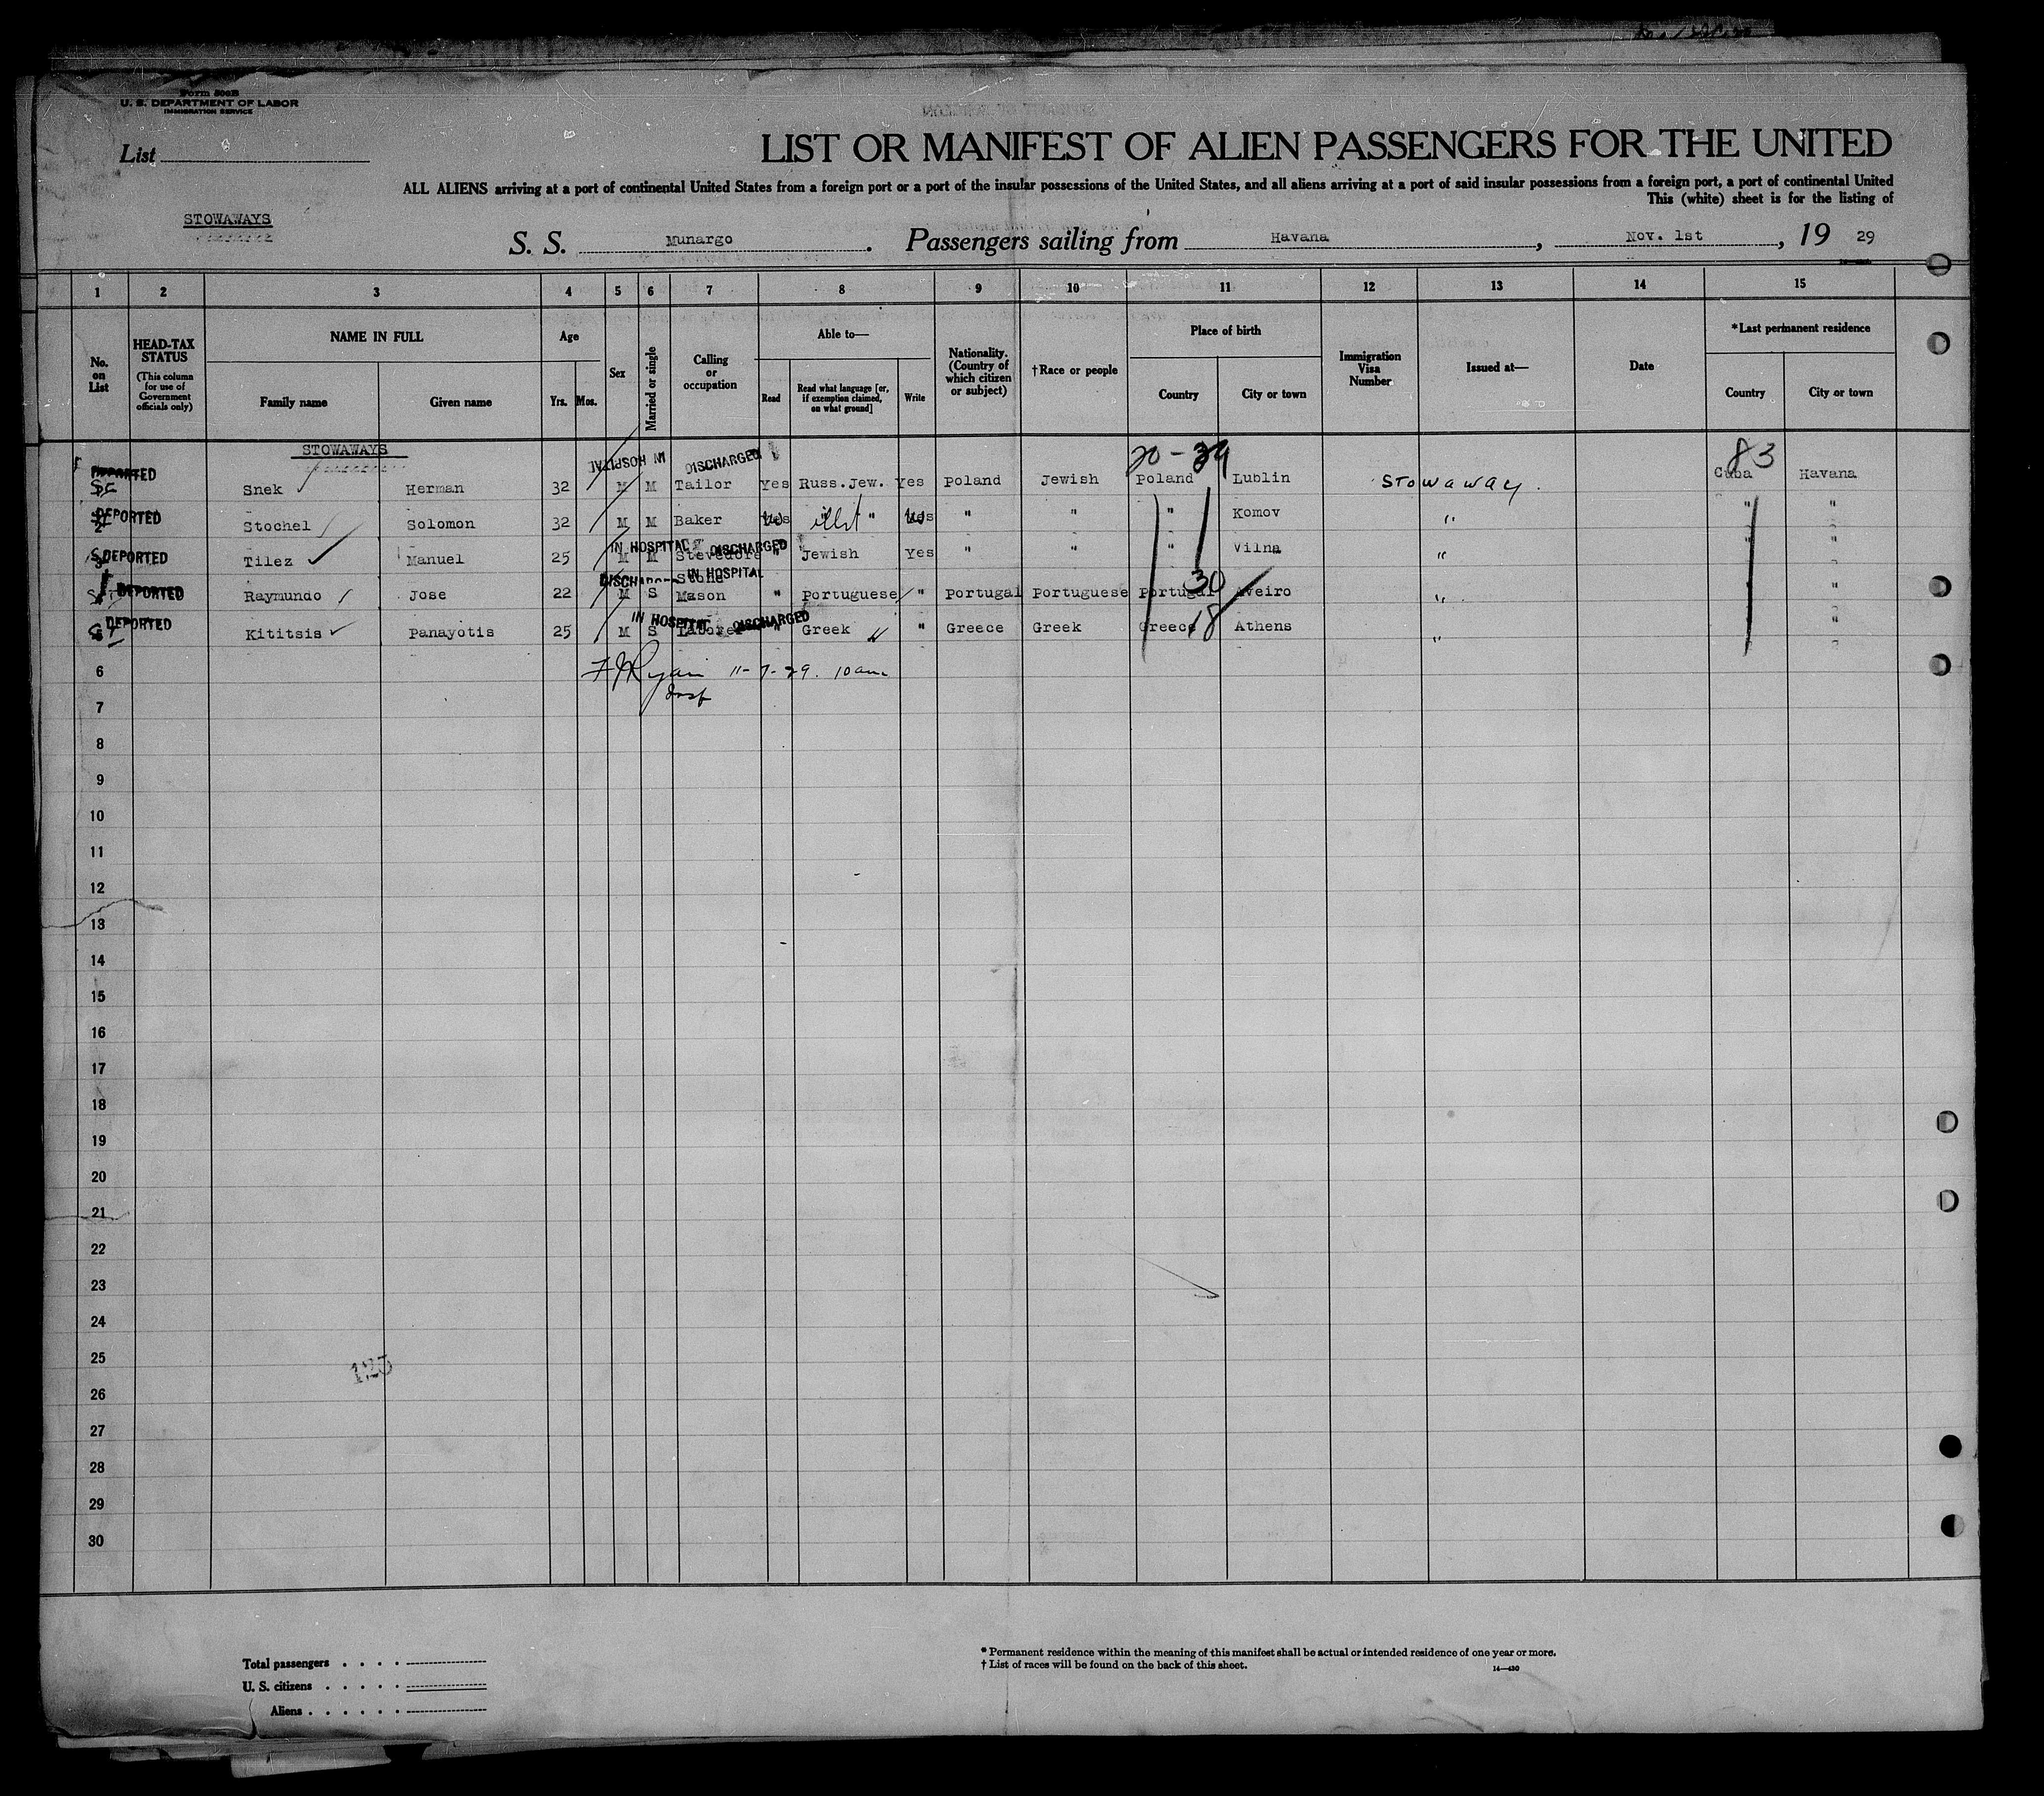 Form 500B
U. S. DEPARTMENT OF LABOR
IMMIGRATION SERVICE
List
LIST OR MANIFEST OF ALIEN PASSENGERS FOR THE UNITED
ALL ALIENS arriving at a port of continental United States from a foreign port or a port of the insular possessions of the United States, and all aliens arriving at a port of said insular possessions from a foreign port, a port of continental United
This (white) sheet is for the listing of
STOWAWAYS
S. S. Munargo. Passengers sailing from Havana, Nov. 1st, 19 29
1 2 3 4 5 6 7 8 9 10 11 12 13 14 15
No. on List
HEAD-TAX STATUS
(This column for use of Government officials only)
NAME IN FULL
Family name
Given name
Age
Yrs. Mos.
Sex
Married or single
Calling or occupation
Able to—
Read
Read what language [or, if exemption claimed, on what ground]
Write
Nationality. (Country of which citizen or subject)
†Race or people
Place of birth
Country
City or town
Immigration Visa Number
Issued at—
Date
*Last permanent residence
Country
City or town
STOWAWAYS
IN HOSPITAL DISCHARGED 20 - 39 83
DEPORTED Snek Herman 32 M M Tailor Yes Russ.Jew. Yes Poland Jewish Poland Lublin Stowaway. Cuba Havana
DEPORTED Stochel Solomon 32 M M Baker Yes " " Yes " " " Komov " " "
IN HOSPITAL DISCHARGED
DEPORTED Tilez Manuel 25 M M Stevedore " Jewish Yes " " " Vilna " " "
DISCHARGED IN HOSPITAL 30
DEPORTED Raymundo Jose 22 M S Stone Mason " Portuguese " Portugal Portuguese Portugal Aveiro " " "
IN HOSPITAL DISCHARGED 18
DEPORTED Kititsis Panayotis 25 M S Laborer " Greek " Greece Greek Greece Athens " "
6 F J Ryan 11-7-29. 10am
Insp
7
8
9
10
11
12
13
14
15
16
17
18
19
20
21
22
23
24
25
123
26
27
28
29
30
Total passengers
U. S. citizens
Aliens
* Permanent residence within the meaning of this manifest shall be actual or intended residence of one year or more.
† List of races will be found on the back of this sheet.
14—430